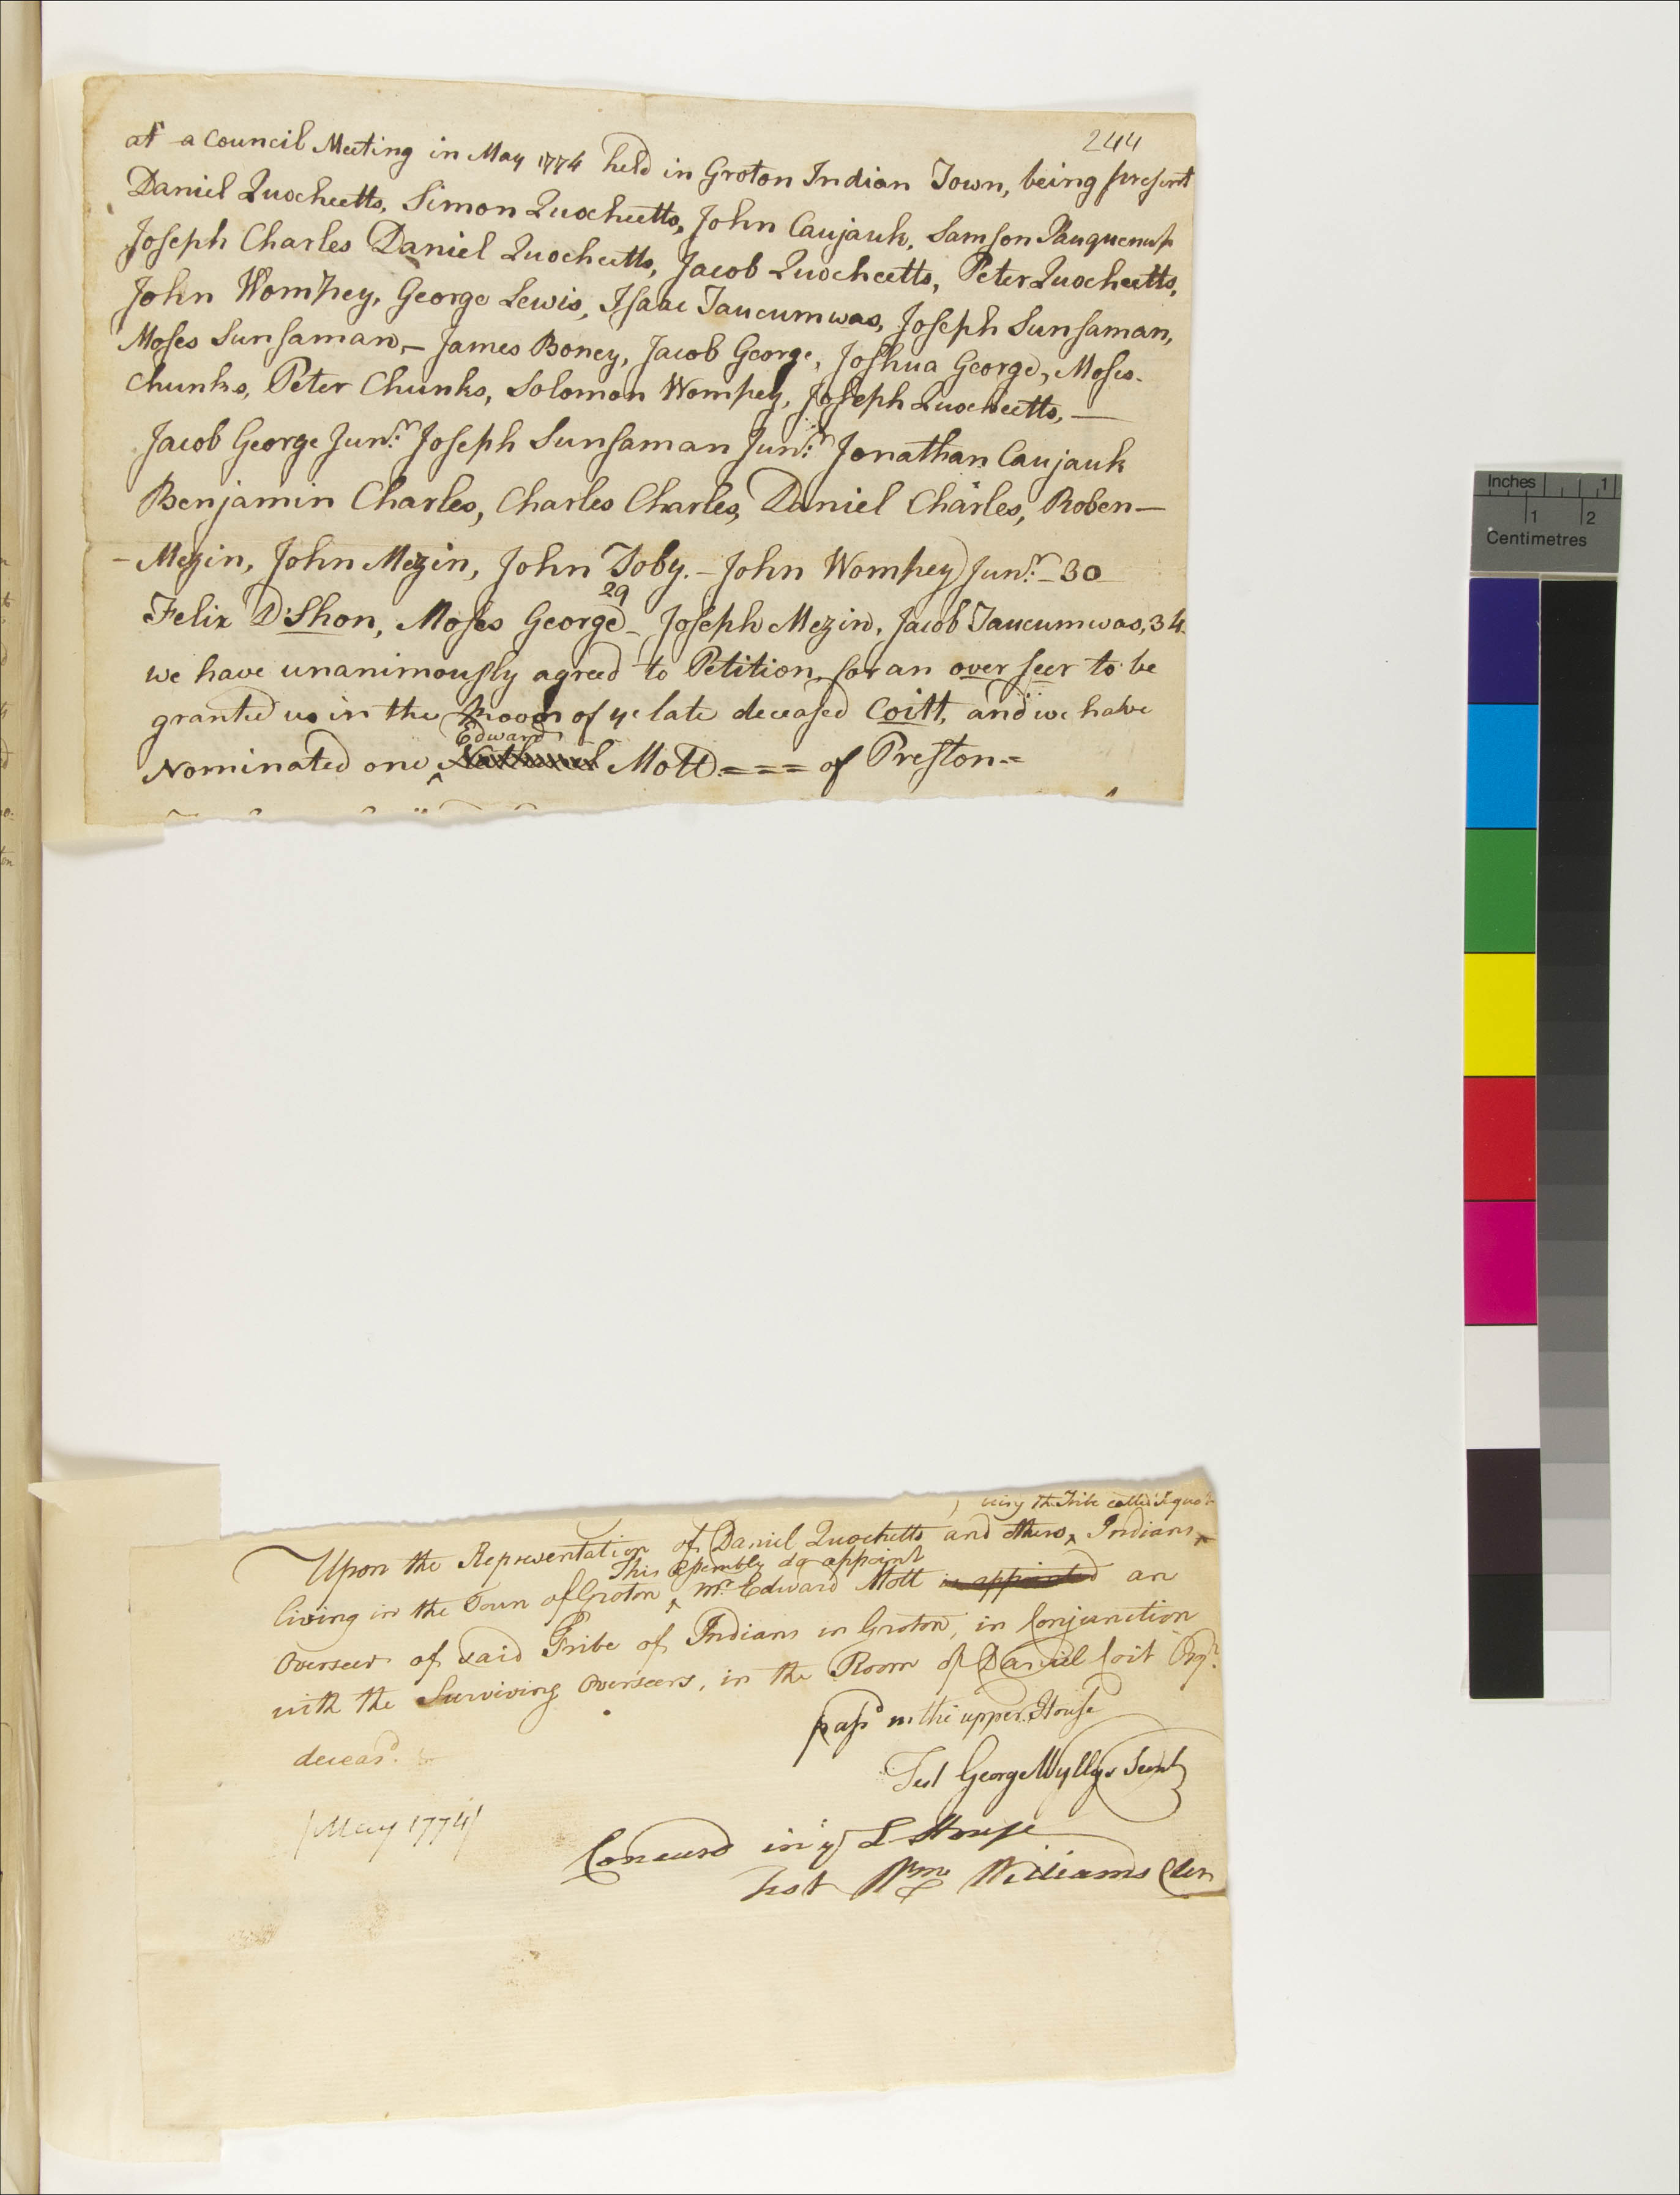 244
at a Council Meeting in May 1774 held in Groton Indian Town, being present
Daniel Quocheetts, Simon Quocheetts, John Caujauk, Samson Pauquenup
Joseph Charles Daniel Quocheetts, Jacob Quocheetts, Peter Quocheetts,
John Wompey, George Lewis, Isaac Taucumwas, Joseph Sunsaman,
Moses Sunsaman,– James Boney, Jacob George, Joshua George, Moses
Chunks, Peter Chunks, Solomon Wompey, Joseph Quocheetts, —
Jacob George Junr. Joseph Sunsaman Junr. Jonathan Caujauk
Benjamin Charles, Charles Charles, Daniel Charles, Roben—
– Mezin, John Mezin, John Toby.– John Wompey Junr.– 30
29
Felix D'Shon, Moses George – Joseph Mezin, Jacob Taucumwas, 34
we have unanimously agreed to Petition, for an over seer to be
granted us in the Room of ye late deceased Coitt, and we have
Edward
Nominated one ^ Nathaniel Mott === of Preston =
being the Tribe called Pequot
Upon the Representation of Daniel Quochetts and others ^ Indians ^
This Assembly do appoint
living in the Town of Groton ^ Mr Edward Mott is appointed an
Overseer of said Tribe of Indians in Groton, in Conjunction
with the Surviving Overseers, in the Room of Daniel Coit Esqr.
deceasd.
passd in the upper House
Test George Wyllys Secrety
[May 1774]
Concurd in ye L House
Test Wm Williams Cler
Inches 1
1 2
Centimetres